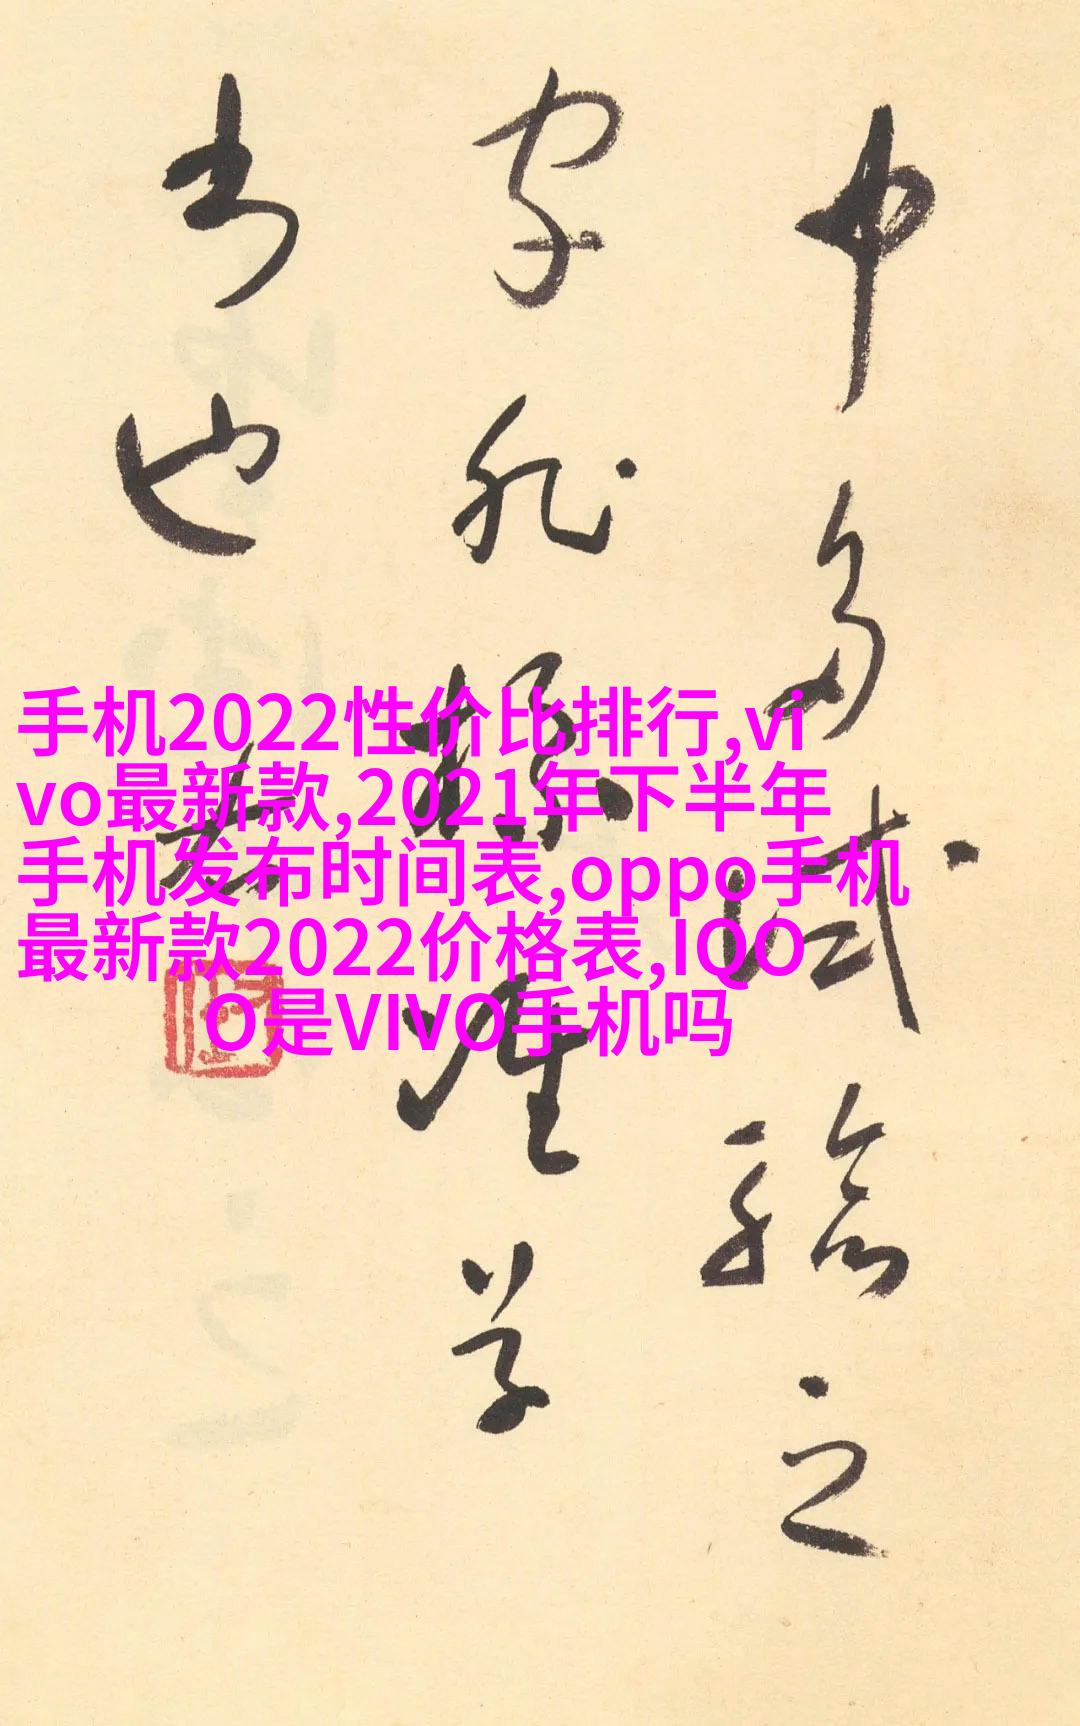 中多试验之
字非标准草
书也
手机2022性价比排行,vi
vo最新款,2021年下半年
手机发布时间表,oppo手机
最新款2022价格表,IQO
O是VIVO手机吗